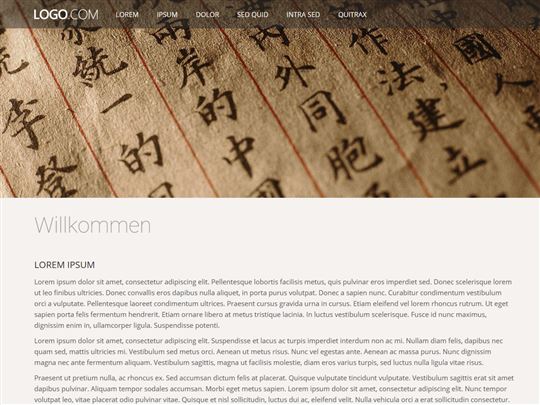 LOGO.COM LOREM IPSUM DOLOR SED QUID INTRA SED QUITRAX
統 一 的
兩 岸 的 中 國
內 外 同 胞
作 法 建 立
國 人
李 登
Willkommen
LOREM IPSUM
Lorem ipsum dolor sit amet, consectetur adipiscing elit. Pellentesque lobortis facilisis metus, quis pulvinar eros imperdiet sed. Donec scelerisque lorem
ut leo finibus ultricies. Donec convallis eros dapibus nulla aliquet, in porta purus volutpat. Donec a sapien nunc. Curabitur condimentum vestibulum
orci a vulputate. Pellentesque laoreet condimentum ultrices. Praesent cursus gravida urna in cursus. Etiam eleifend vel lorem rhoncus pretium. Ut eget
sapien in orci porta felis fermentum hendrerit. Etiam ornare libero at metus tristique, in consectetur enim scelerisque. Fusce id nunc maximus,
dignissim enim in, ullamcorper ligula. Suspendisse potenti.
Lorem ipsum dolor sit amet, consectetur adipiscing elit. Suspendisse et lacus ac turpis imperdiet interdum non ac mi. Nullam diam felis, dapibus nec
quam sed, mattis ultricies mi. Vestibulum sed metus orci. Aenean ut metus risus. Nunc vel egestas ante. Aenean ac massa purus. Nunc dignissim
magna nec ante fermentum aliquam. Vestibulum sagittis, magna ut facilisis molestie, diam eros varius turpis, sed luctus nulla ligula vitae erat.
Praesent ut pretium nulla, ac rhoncus ex. Sed accumsan dictum felis at placerat. Quisque vulputate tincidunt vulputate. Vestibulum sagittis erat sit amet
dapibus pulvinar. Aliquam tempor sodales accumsan. Morbi eget metus sapien. Lorem ipsum dolor sit amet, consectetur adipiscing elit. Ut porta volutpat
leo vitae dapibus. Quisque et nisl sollicitudin, luctus dui ac, dictum nisi. In id eleifend velit. Nulla vehicula orci a erat consectetur, quis consectetur.